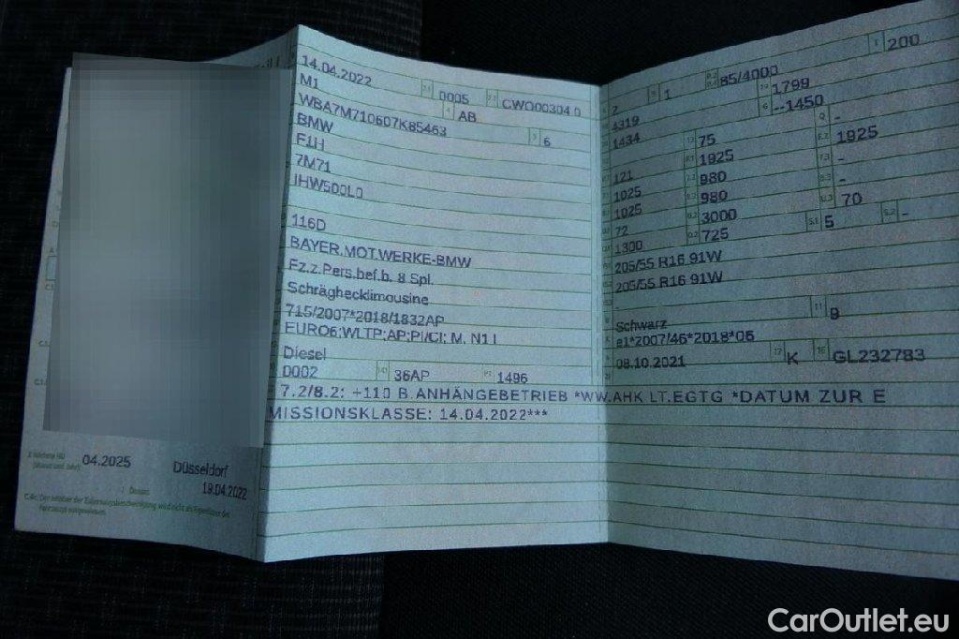 14.04.2022 0005 CWO00304 0
M1 AB
WBA7M710607K85463 6
BMW
F1H
7M71
IHW500L0
116D
BAYER.MOT.WERKE-BMW
Fz.z.Pers.bef.b. 8 Spl.
Schräghecklimousine
715/2007*2018/1832AP
EURO6;WLTP;AP;PI/CI; M, N1 I
Diesel
0002 36AP 1496
7.2/8.2: +110 B.ANHÄNGEBETRIEB *WW.AHK LT.EGTG *DATUM ZUR E
MISSIONSKLASSE: 14.04.2022***
2 1 85/4000 200
4319 1799
1434 --1450
75 -
121 1925 1925
1025 980 -
1025 980 -
72 3000 70
1300 725 5 -
205/55 R16 91W
205/55 R16 91W
Schwarz 9
e1*2007/46*2018*06
08.10.2021 K GL232783
04.2025 Düsseldorf
19.04.2022
CarOutlet.eu